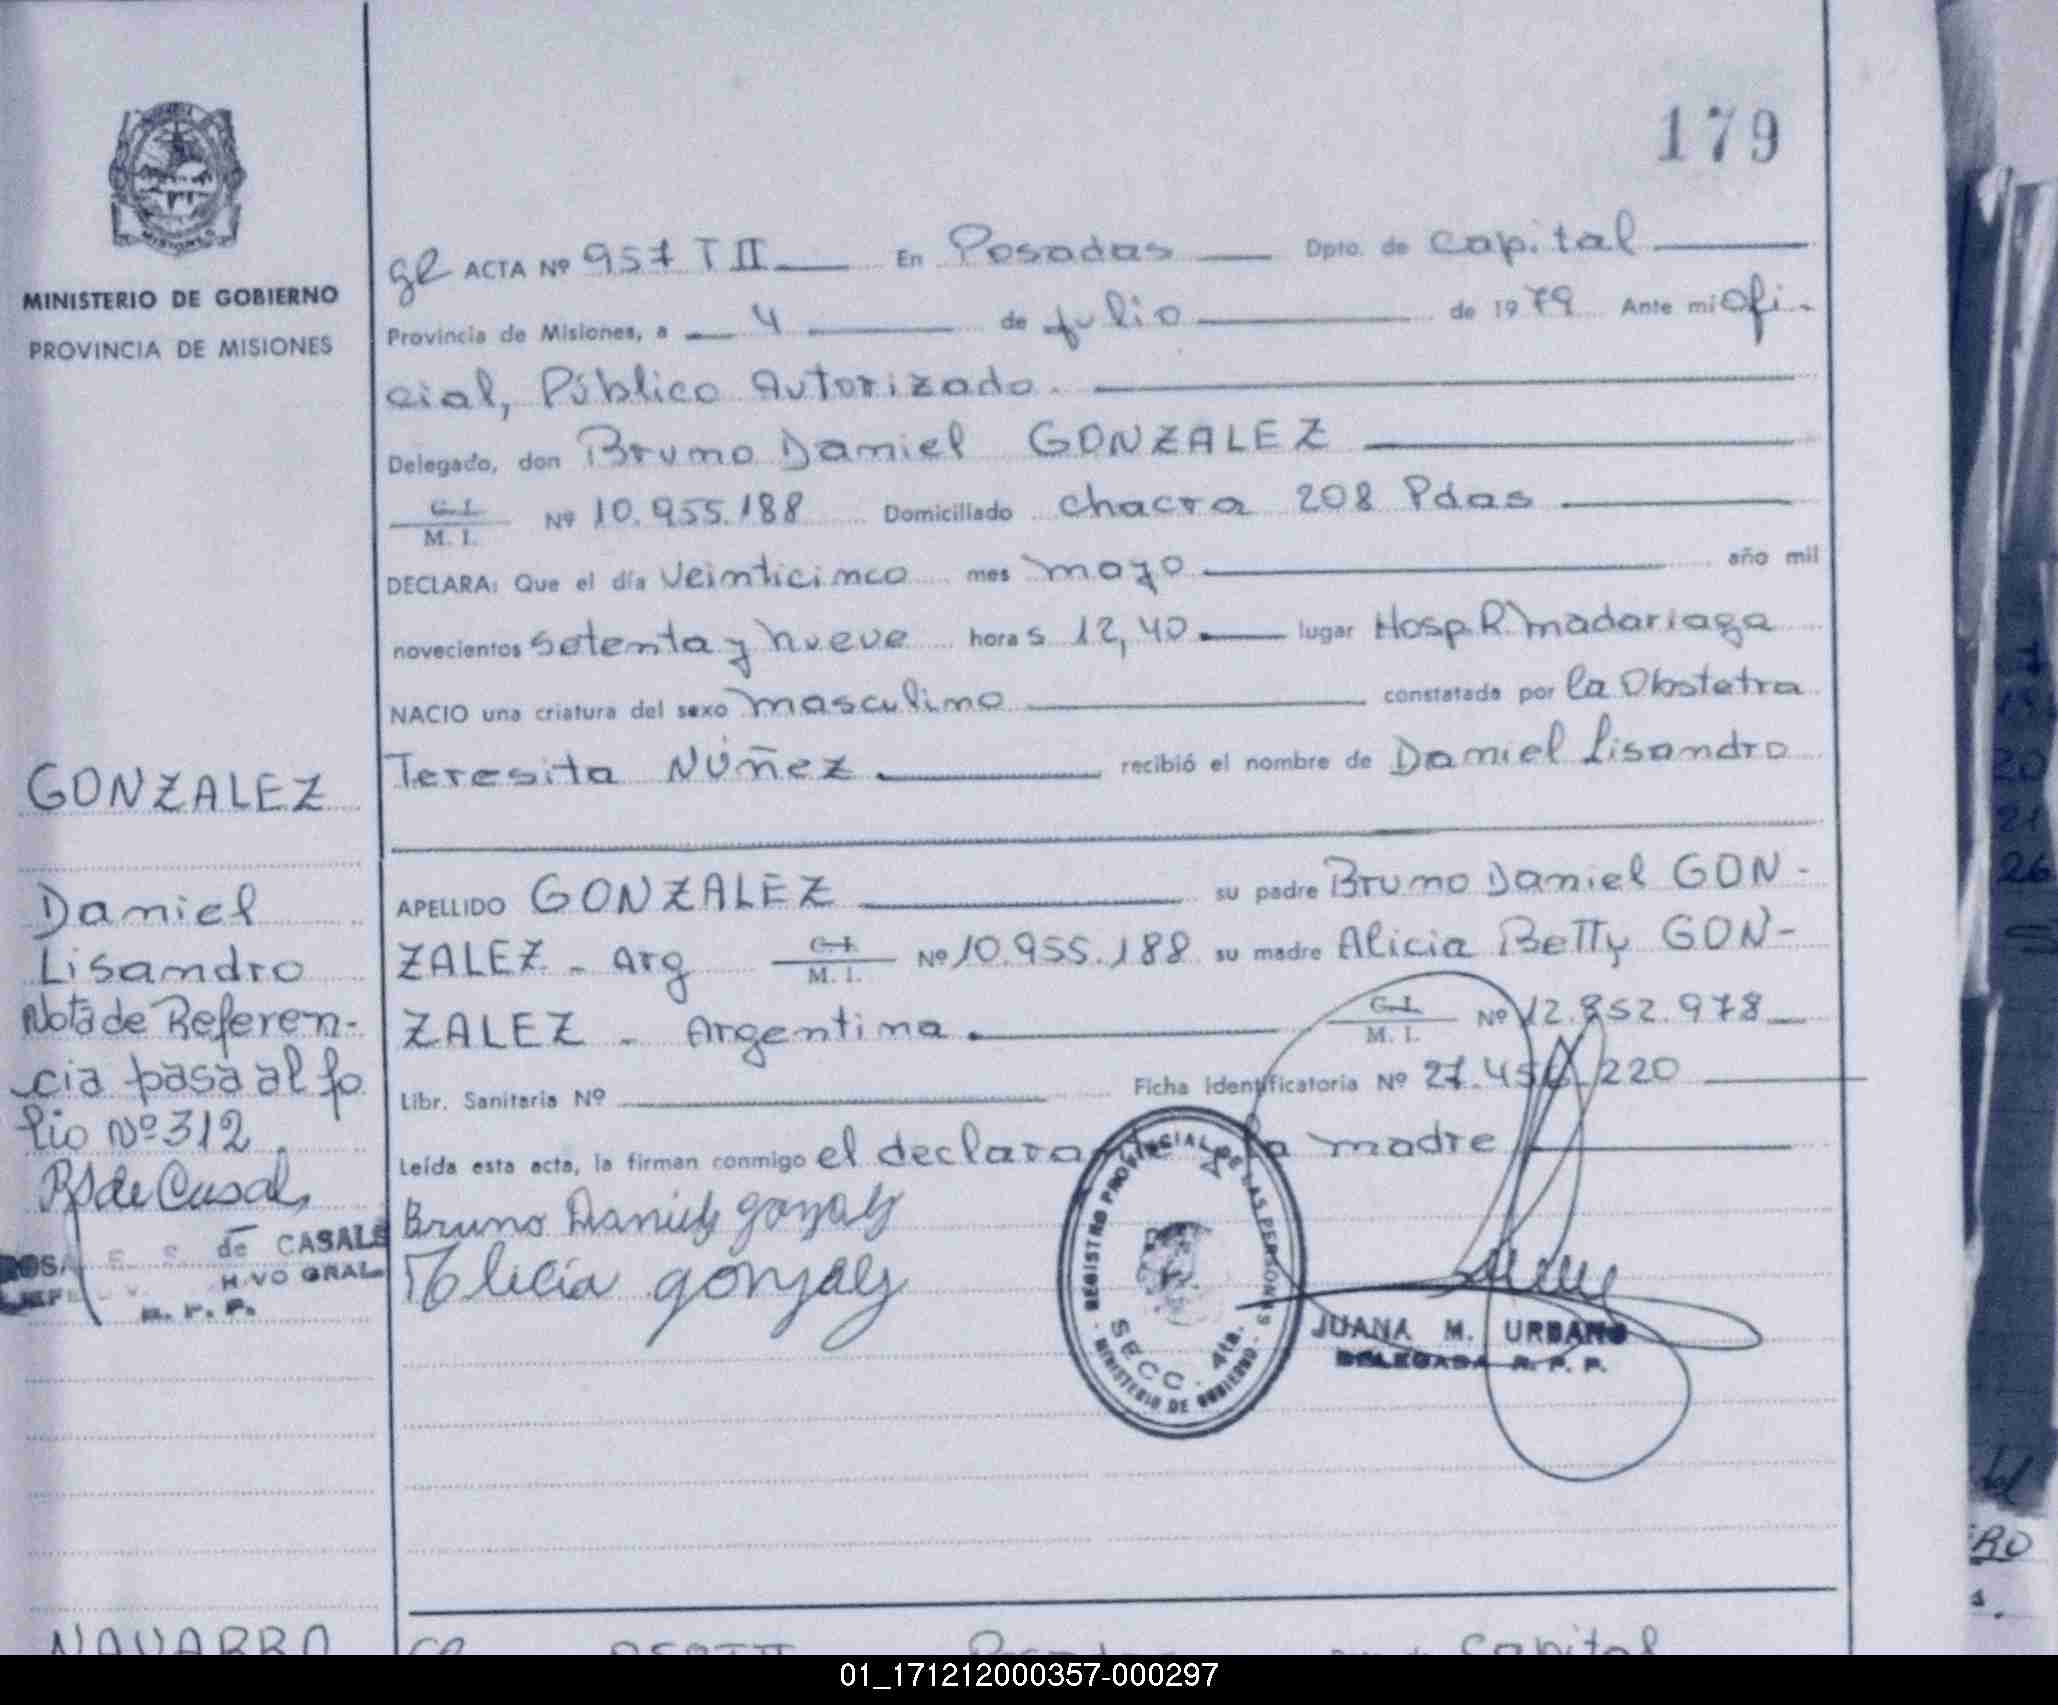 179
MISIONES
MINISTERIO DE GOBIERNO
PROVINCIA DE MISIONES
ACTA Nº 957 T II En Posadas Dpto. de Capital
Provincia de Misiones, a 4 de julio de 1979 Ante mi Ofi-
cial, Público Autorizado.
Delegado, don Bruno Daniel GONZALEZ
C. I.
M. I. Nº 10.955.188 Domiciliado chacra 208 Pdas
DECLARA: Que el día Veinticinco mes mayo año mil
novecientos setenta y nueve horas 12,40 lugar Hosp. R. Madariaga
NACIO una criatura del sexo masculino constatada por la Obstetra
Teresita NÚÑEZ recibió el nombre de Daniel Lisandro
GONZALEZ
Daniel
Lisandro
Nota de Referen-
cia pasa al fo
lio Nº 312
de Casals
de CASALS
GRAL
R. P. P.
APELLIDO GONZALEZ su padre Bruno Daniel GON-
ZALEZ - Arg C. I.
M. I. Nº 10.955.188 su madre Alicia Betty GON-
ZALEZ - Argentina C. I.
M. I. Nº 12.852.978
Libr. Sanitaria Nº Ficha identificatoria Nº 220
Leída esta acta, la firman conmigo el la madre
Bruno Daniel Gonzalez
Alicia Gonzalez
REGISTRO PROVINCIAL DE LAS PERSONAS
SECC. 4ta.
MINISTERIO DE GOBIERNO
JUANA M. URBANO
DELEGADA R. P. P.
NAVARRO
Posadas Capital
20
21
26
01_171212000357-000297